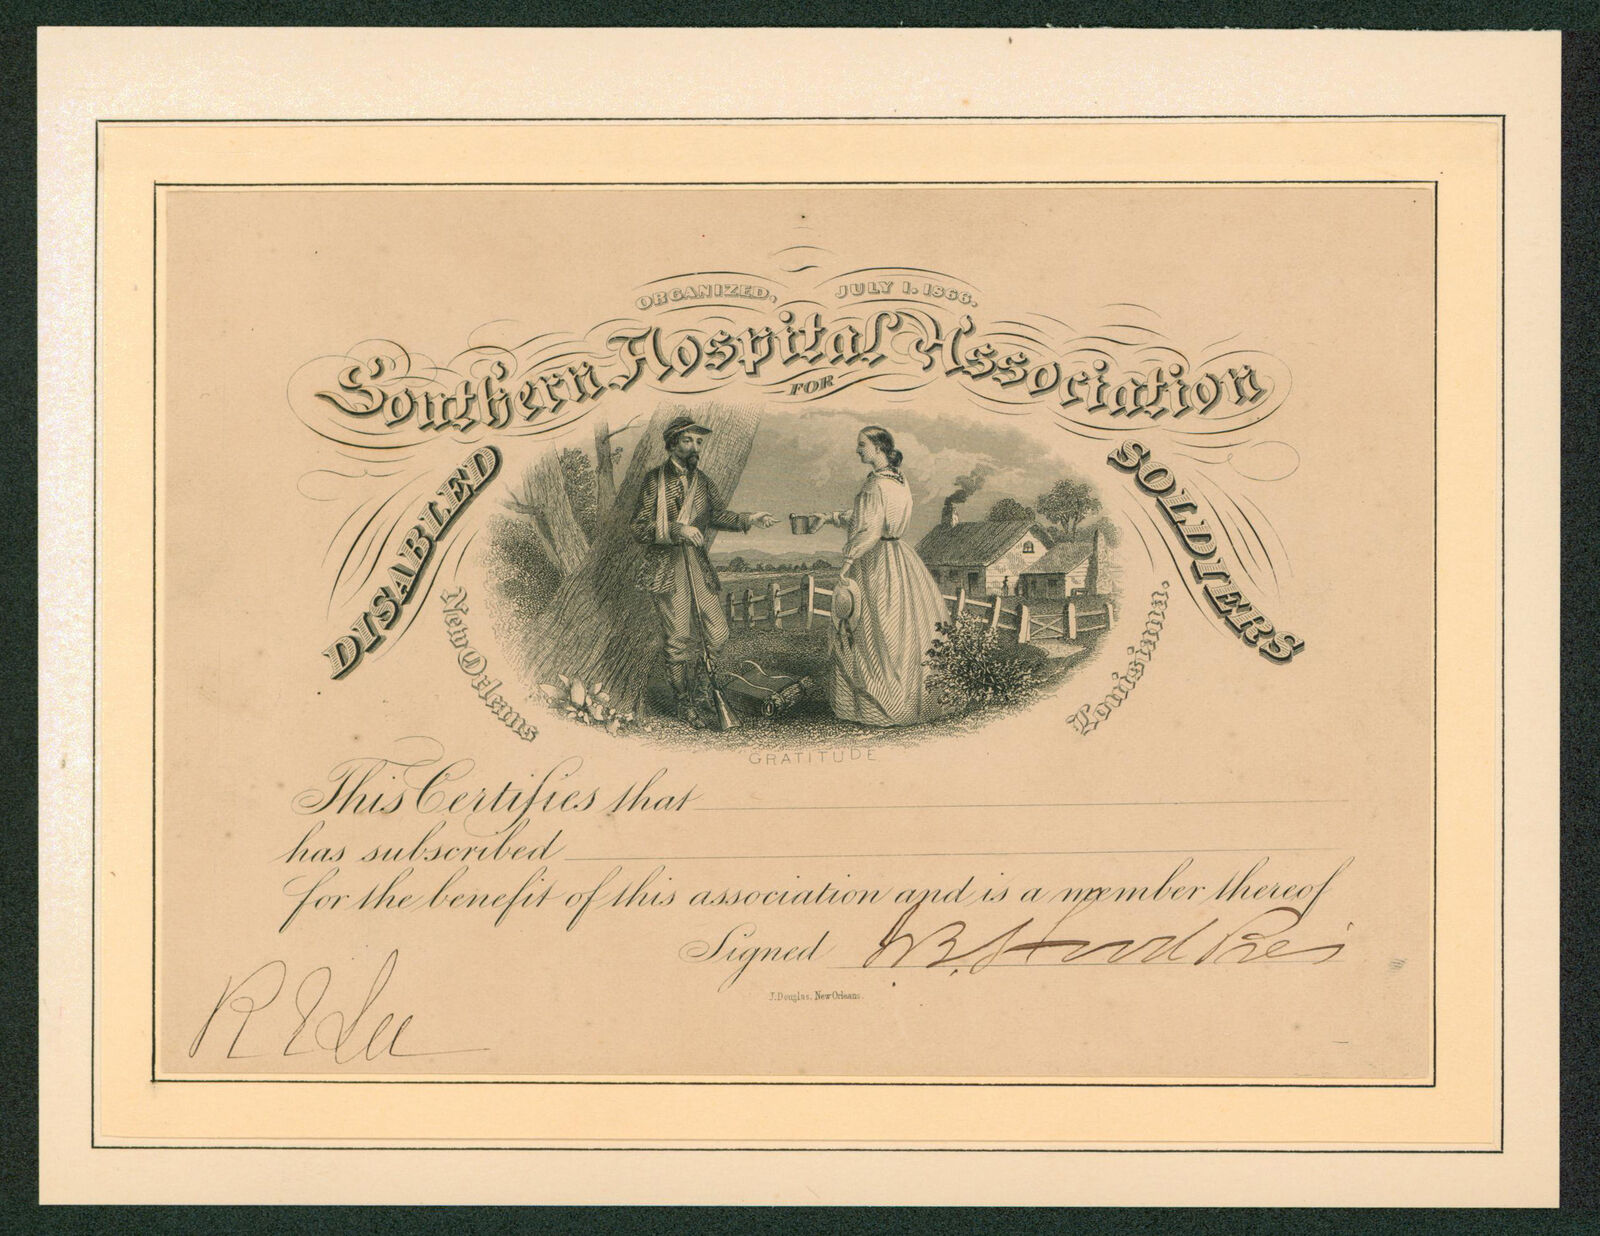 ORGANIZED, JULY 1. 1866.
Southern Hospital Association
FOR
DISABLED SOLDIERS
New Orleans Louisiana.
GRATITUDE
This Certifies that
has subscribed
for the benefit of this association and is a member thereof
Signed JB. Hood Pres
J. Douglas, New Orleans.
R E Lee